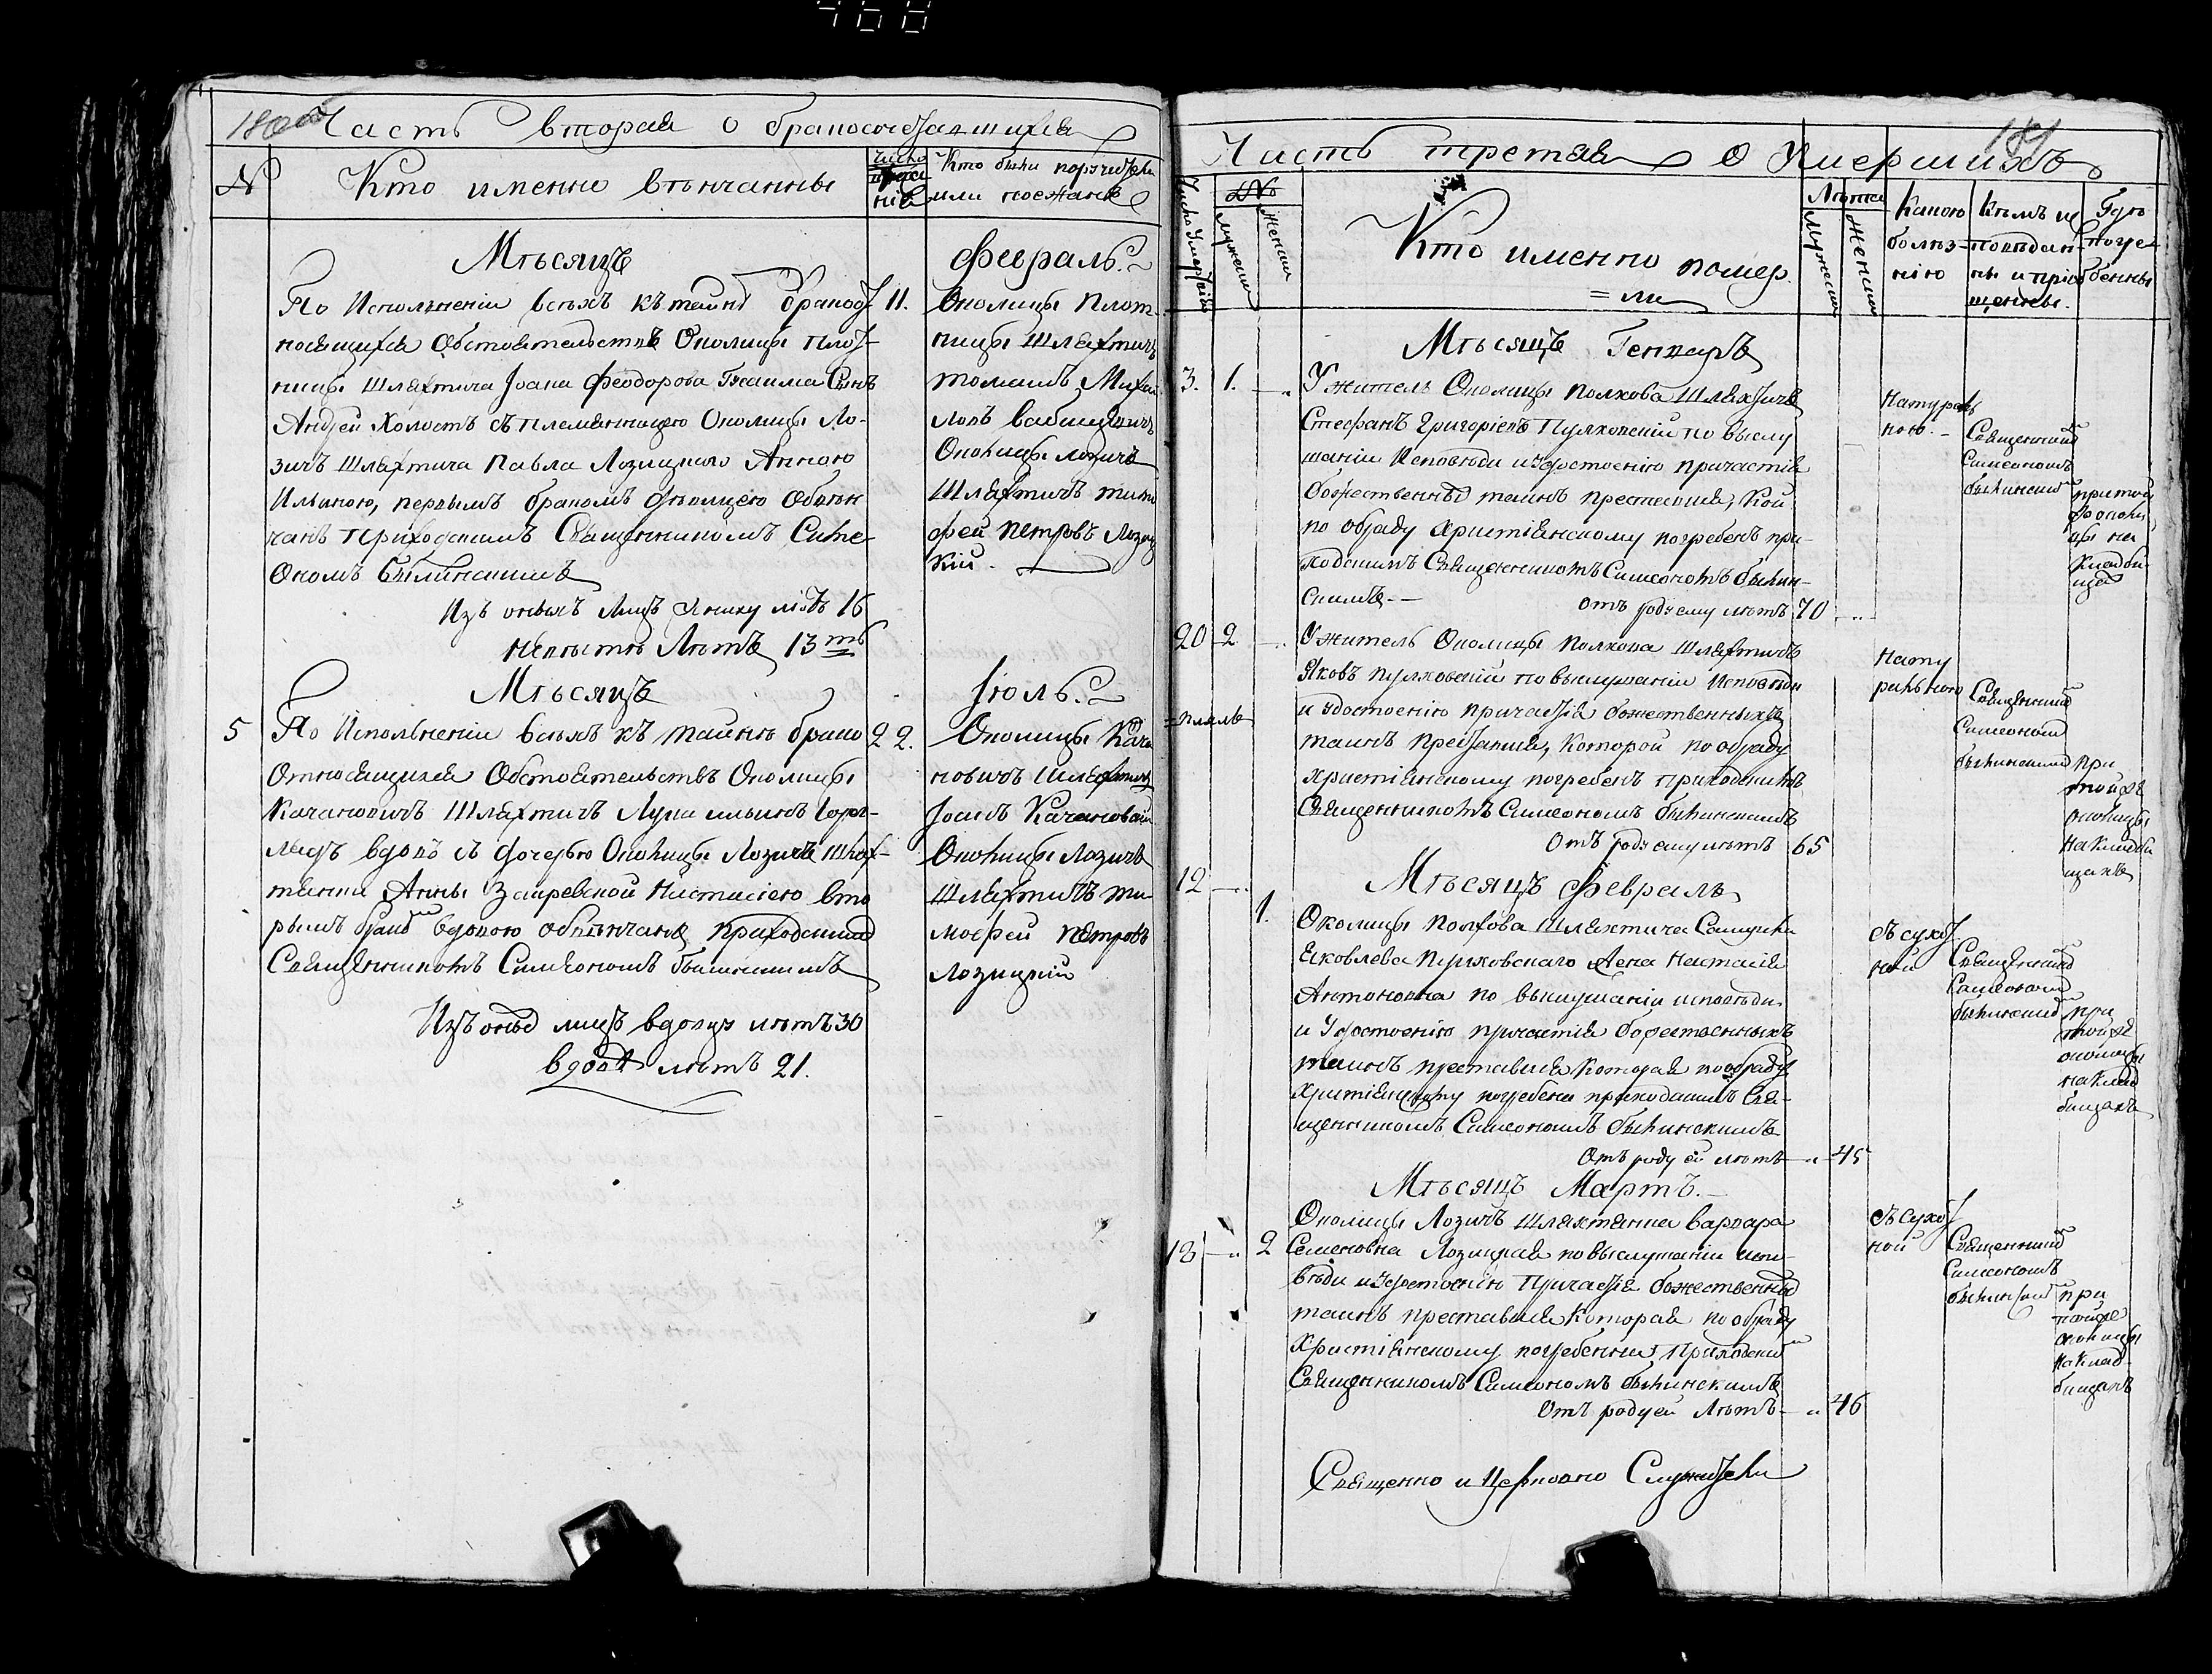 468
180 об
Часть вторая о бракосочетавшихся
№
Кто именно венчанны
Число
Кто были поручители
или поезжане
Мѣсяцъ
Февраль.
По Исполненіи всѣхъ къ тайнѣ бракот
11.
носящихся Обстоятельствъ Околицы Плот-
ницы Шляхтича Іоана Феодорова Сынъ
Андрей Холостъ съ племянницею Околицы Ло-
зичъ Шляхтича Павла Лозицкого Анною
Ильиною, первымъ бракомъ дѣвицею Обвѣн
чанъ Приходскимъ Священникомъ Симе
Ономъ Былинскимъ
Изъ оныхъ Лицъ Жениху лѣтъ 16
Невѣстѣ Лѣтъ 13ть
Околицы Плот-
ницы Шляхтичъ
Томашъ Михай
ловъ
Околицы Лозичъ
Шляхтичъ Тимо
фей Петровъ Лозиц
кій.
Мѣсяцъ
Іюль.
5
По Исполненіи всѣхъ къ тайнѣ брако
22.
Относящихся Обстоятельствъ Околицы
Качановичъ Шляхтичъ Лука Ильинъ
вдовъ съ дочерью Околицы Лозичъ Шлях-
тянки Анны Настасіею вто
рымъ вдовою обвѣнчанъ приходскимъ
Священникомъ Симеономъ Былинскимъ
Изъ оныхъ лицъ вдовцу лѣтъ 30
вдовѣ лѣтъ 21.
Околицы Кача
новичъ Шляхтичъ
Качановскій
Околицы Лозичъ
Шляхтичъ Ти-
мофей Петровъ
Лозицкій
181
Часть третая о Умершихъ
Число Умертвія
№
Мужескъ
Женскъ
Кто именно помер.
= ли
Лѣта
Мужескъ
Женскъ
Какою
болѣз-
нію
Кѣмъ ис
повѣдан-
ны и пріоб
щенны.
Гдѣ
погре-
бенны
Мѣсяцъ Генварь
3. 1.
Ужитель Околицы Полкова Шляхтичъ
Стефанъ Григоріевъ Пулковскій по выслу
шаніи Исповѣди и Удостоенію Причастія
божественных таинъ преставися, Кой
по обряду Христіянскому погребенъ при-
ходскимъ Священникомъ Симеономъ Былин-
скимъ.
Отъ роду ему лѣтъ 70
Натураль
ною.
Священником
Симеономъ
Былинским
при той
околи
цы на
Кладби
щѣ
20 2
Ужитель Околицы Полкова Шляхтичъ
Яковъ Пулковскій по выслушаніи Исповѣди
и Удостоенію Причастія божественныхъ
таинъ преставися, Которой по обряду
Христіянскому погребенъ приходскимъ
Священникомъ Симеономъ Былинскимъ
Отъ роду ему лѣтъ 65
Нату
ральною
Священником
Симеоном
Былинским
при
той же
околицы
На Кладби
щахъ
Мѣсяцъ Февраль
12
1.
Околицы Полкова Шляхтича Самуила
Яковлева Пулковскаго Жена Настасія
Антоновна по выслушаніи исповѣди
и Удостоенію причастія божественныхъ
таинъ преставися Которая по обряду
Христіянскому погребена приходскимъ Свя-
щенникомъ Симеономъ Былинскимъ
Отъ роду ей лѣтъ 45
Съ сухот
ной
Священником
Симеоном
Былинским
при
той же
околицы
на Клад
бищахъ
Мѣсяцъ Мартъ.
18
2
Околицы Лозичъ Шляхтянка Варвара
Семеновна Лозицкая по выслушаніи испо-
вѣди и Удостоенію Причастія божественных
таинъ преставися Которая по обряду
Христіянскому погребенна приходским
Священникомъ Симеономъ Былинскимъ
Отъ роду ей Лѣтъ 46
Съ Сухот
ной
Священником
Симеономъ
Былинским
при
той же
околицы
на Клад-
бищахъ
Священно и Церковно Служители